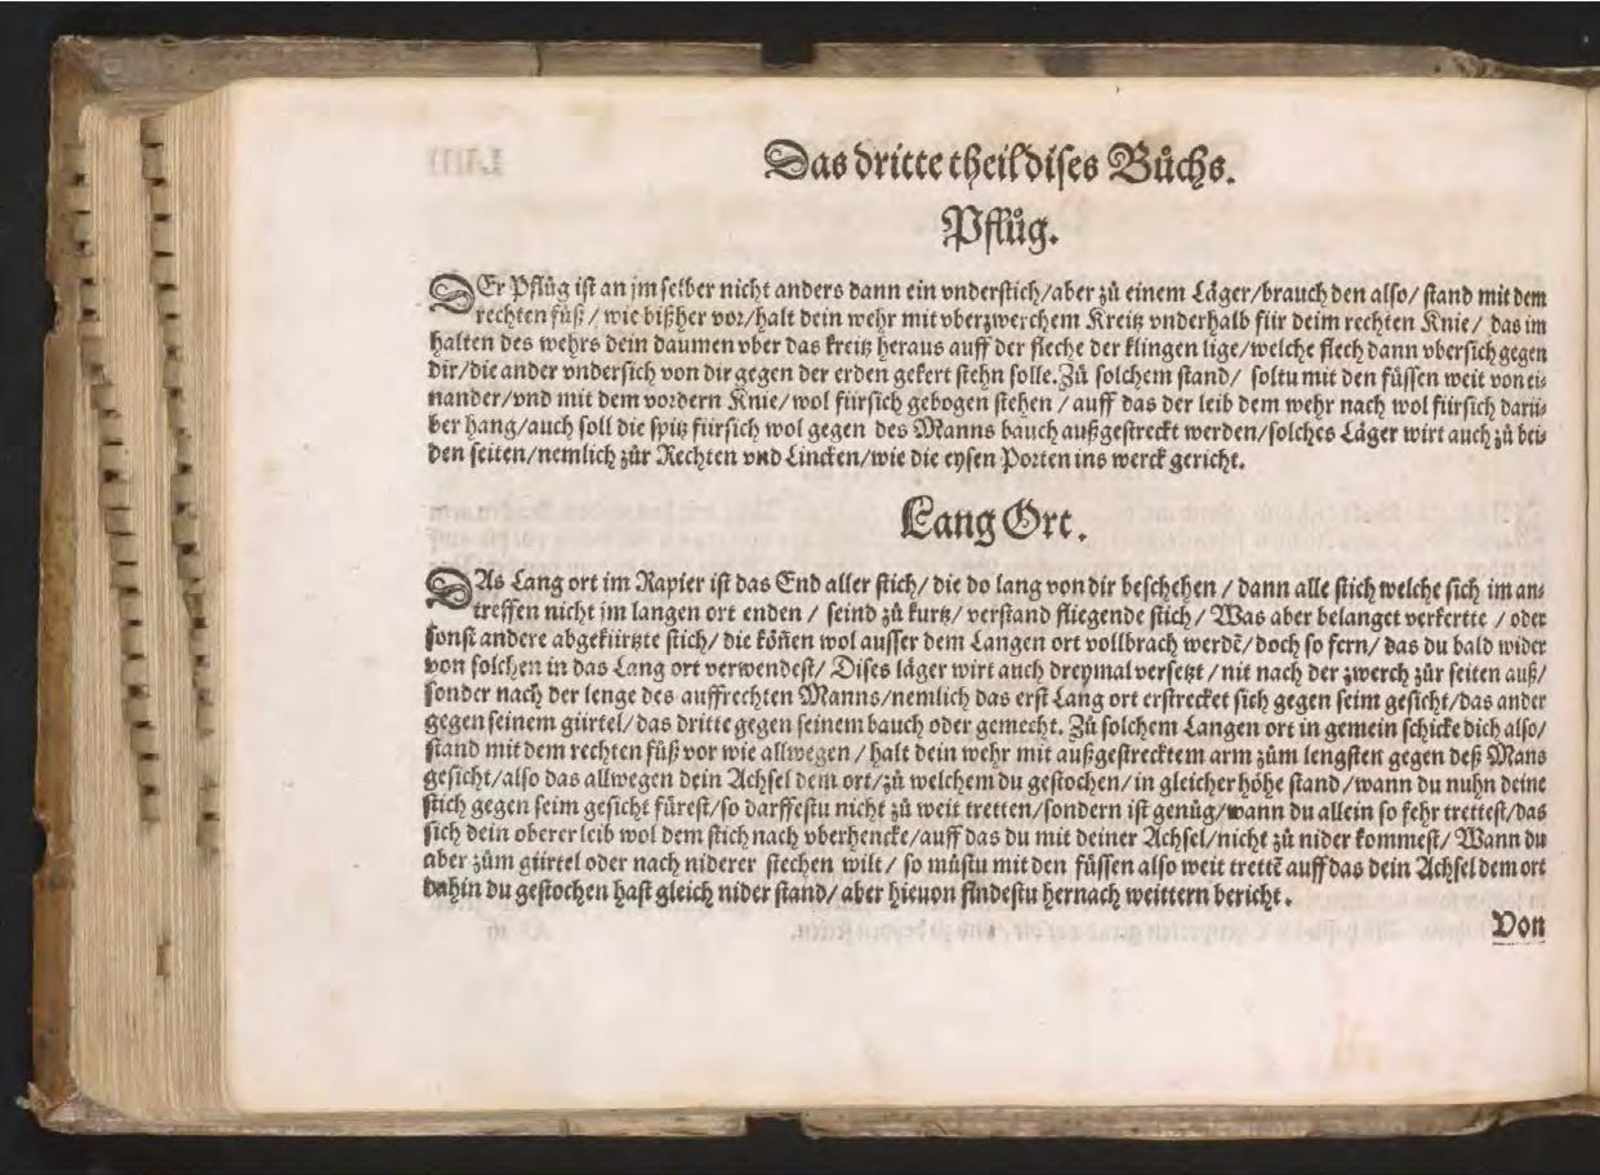 Das dritte theil dises Bůchs.
Pflůg.
DEr Pflůg ist an jm selber nicht anders dann ein vnderstich/aber zů einem Läger/brauch den also/ stand mit dem
rechten fůß/ wie bißher vor/halt dein wehr mit vberzwerchem Kreitz vnderhalb für deim rechten Knie/ das im
halten des wehrs dein daumen vber das kreitz heraus auff der fleche der klingen lige/welche flech dann vbersich gegen
dir/die ander vndersich von dir gegen der erden gekert stehn solle. Zů solchem stand/ soltu mit den füssen weit von ei⸗
nander/vnd mit dem vordern Knie/wol fürsich gebogen stehen/ auff das der leib dem wehr nach wol fürsich darü⸗
ber hang/auch soll die spitz fürsich wol gegen des Manns bauch außgestreckt werden/solches Läger wirt auch zů bei⸗
den seiten/nemlich zůr Rechten vnd Lincken/wie die eysen Porten ins werck gericht.
Lang Ort.
DAs Lang ort im Rapier ist das End aller stich/ die do lang von dir beschehen/ dann alle stich welche sich im an⸗
treffen nicht jm langen ort enden/ seind zů kurtz/ verstand fliegende stich/ Was aber belanget verkertte/ oder
sonst andere abgekürtzte stich/ die köñen wol ausser dem Langen ort vollbrach werdē/doch so fern/ das du bald wider
von solchen in das Lang ort verwendest/ Dises läger wirt auch dreymal versetzt/nit nach der zwerch zůr seiten auß/
sonder nach der lenge des auffrechten Manns/nemlich das erst Lang ort erstrecket sich gegen seim gesicht/das ander
gegen seinem gürtel/das dritte gegen seinem bauch oder gemecht. Zů solchem Langen ort in gemein schicke dich also/
stand mit dem rechten fůß vor wie allwegen/ halt dein wehr mit außgestrecktem arm zům lengsten gegen deß Mans
gesicht/also das allwegen dein Achsel dem ort/zů welchem du gestochen/in gleicher höhe stand/wann du nuhn deine
stich gegen seim gesicht fürest/so darffestu nicht zů weit tretten/sondern ist genůg/wann du allein so fehr trettest/das
sich dein oberer leib wol dem stich nach vberhencke/auff das du mit deiner Achsel/nicht zů nider kommest/ Wann du
aber zům gürtel oder nach niderer stechen wilt/ so můstu mit den füssen also weit trettē auff das dein Achsel dem ort
dahin du gestochen hast gleich nider stand/ aber hieuon findestu hernach weittern bericht.
Von